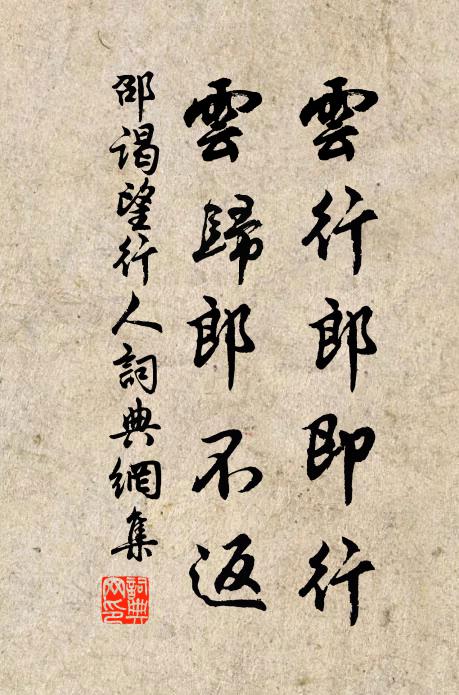 雲行郎即行
雲歸郎不返
邵謁望行人詞典網集
詞典網印